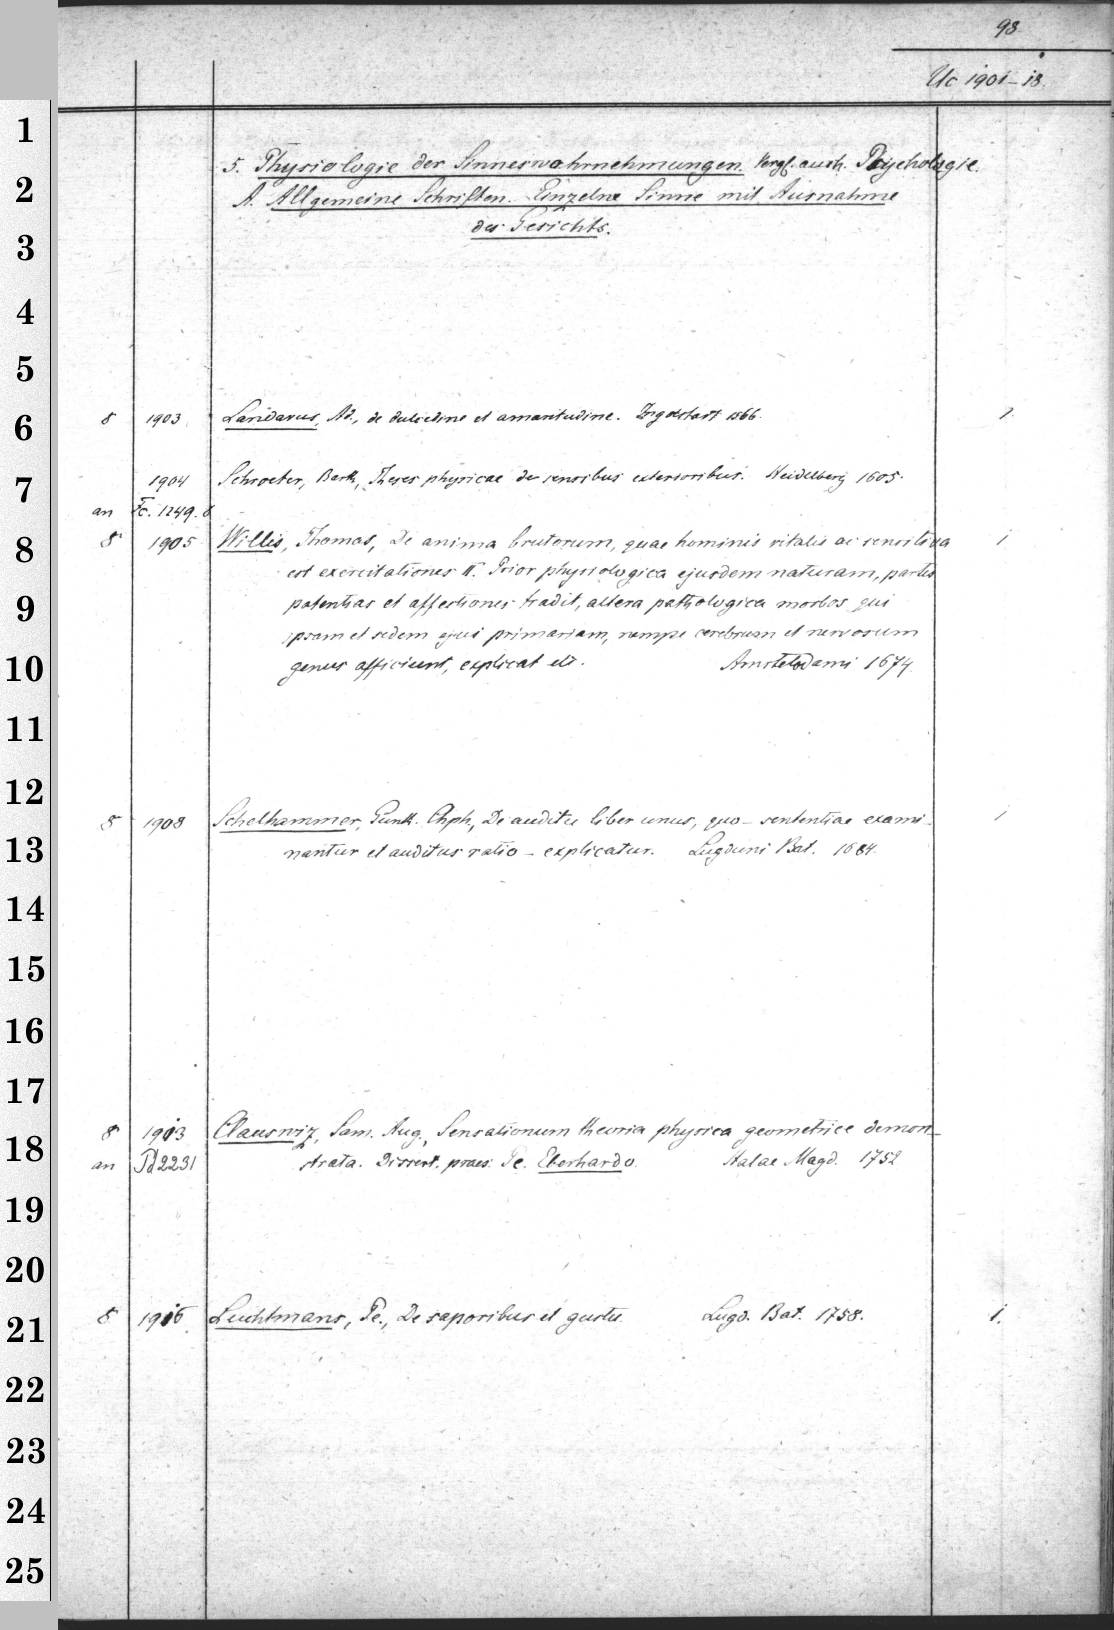 98
Uc 1901-18.
5. Physiologie der Sinneswahrnehmungen. Vergl. auch Psychologie.
A. Allgemeine Schriften. Einzelne Sinne mit Ausnahme
des Gesichts.
8 1903 Landavus, Ad., de dulcedine et amaritudine. Ingolstadt 1566. 1
1904 Schroeter, Barth., Theses physicae de sensibus exterioribus. Heidelberg 1605.
an Tc. 1249. 8
8° 1905 Willis, Thomas, De anima brutorum, quae hominis vitalis ac sensitiva 1
est exercitationes II. Prior physiologica ejusdem naturam, partes
potentias et affectiones tradit, altera pathologica morbos qui
ipsam et sedem ejus primariam, nempe cerebrum et nervosum
genus afficiunt, explicat etc. Amstelodami 1674
8 1908 Schelhammer, Gunth. Chph., De auditu liber unus, quo - sententiae exami- 1
nantur et auditus ratio - explicatur. Lugduni Bat. 1684.
8 1913 Clauswiz, Sam. Aug., Sensationum theoria physica geometrice demon-
an Pd 2231 strata. Dissert. praes. Pe. Eberhardo. Halae Magd. 1752
8 1916 Luchtmans, Pe., De saporibus et gustu. Lugd. Bat. 1758. 1.
1
2
3
4
5
6
7
8
9
10
11
12
13
14
15
16
17
18
19
20
21
22
23
24
25